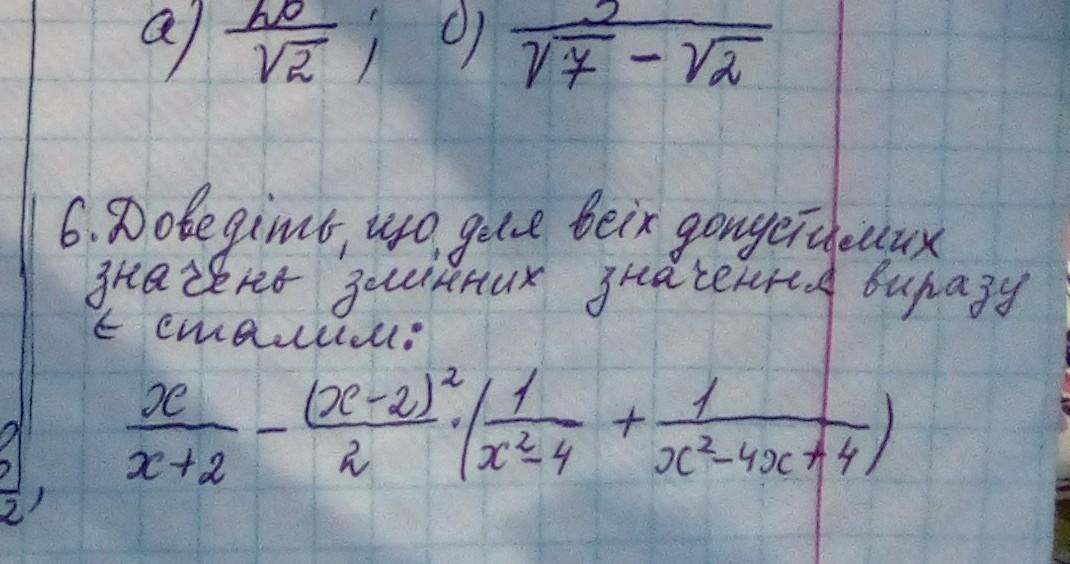 а) /√2 ; б) /(√7 − √2)
6. Доведіть, що для всіх допустимих
значень змінних значення виразу
є сталим:
x/(x+2) − (x−2)²/2 · (1/(x²−4) + 1/(x²−4x+4))